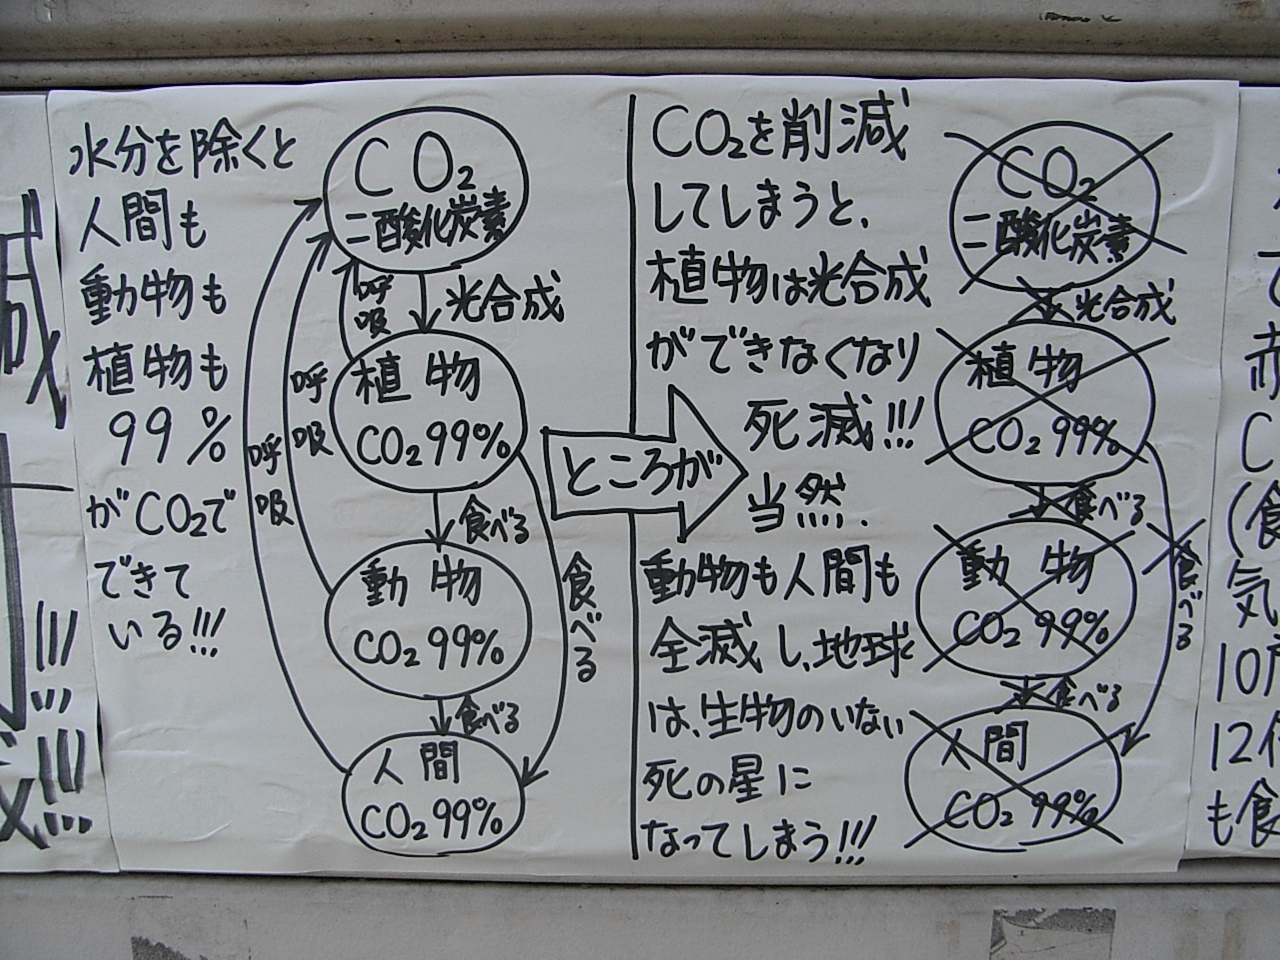 水分を除くと
人間も
動物も
植物も
99%
がCO2で
できて
いる!!!
CO2
二酸化炭素
呼吸
光合成
植物
CO2 99%
呼吸
呼吸
食べる
動物
CO2 99%
食べる
食べる
人間
CO2 99%
ところが
CO2を削減
してしまうと、
植物は光合成
ができなくなり
死滅!!!
当然、
動物も人間も
全滅し、地球
は、生物のいない
死の星に
なってしまう!!!
CO2
二酸化炭素
光合成
植物
CO2 99%
食べる
動物
CO2 99%
食べる
食べる
人間
CO2 99%
赤
C
(食
気
10
12
も食